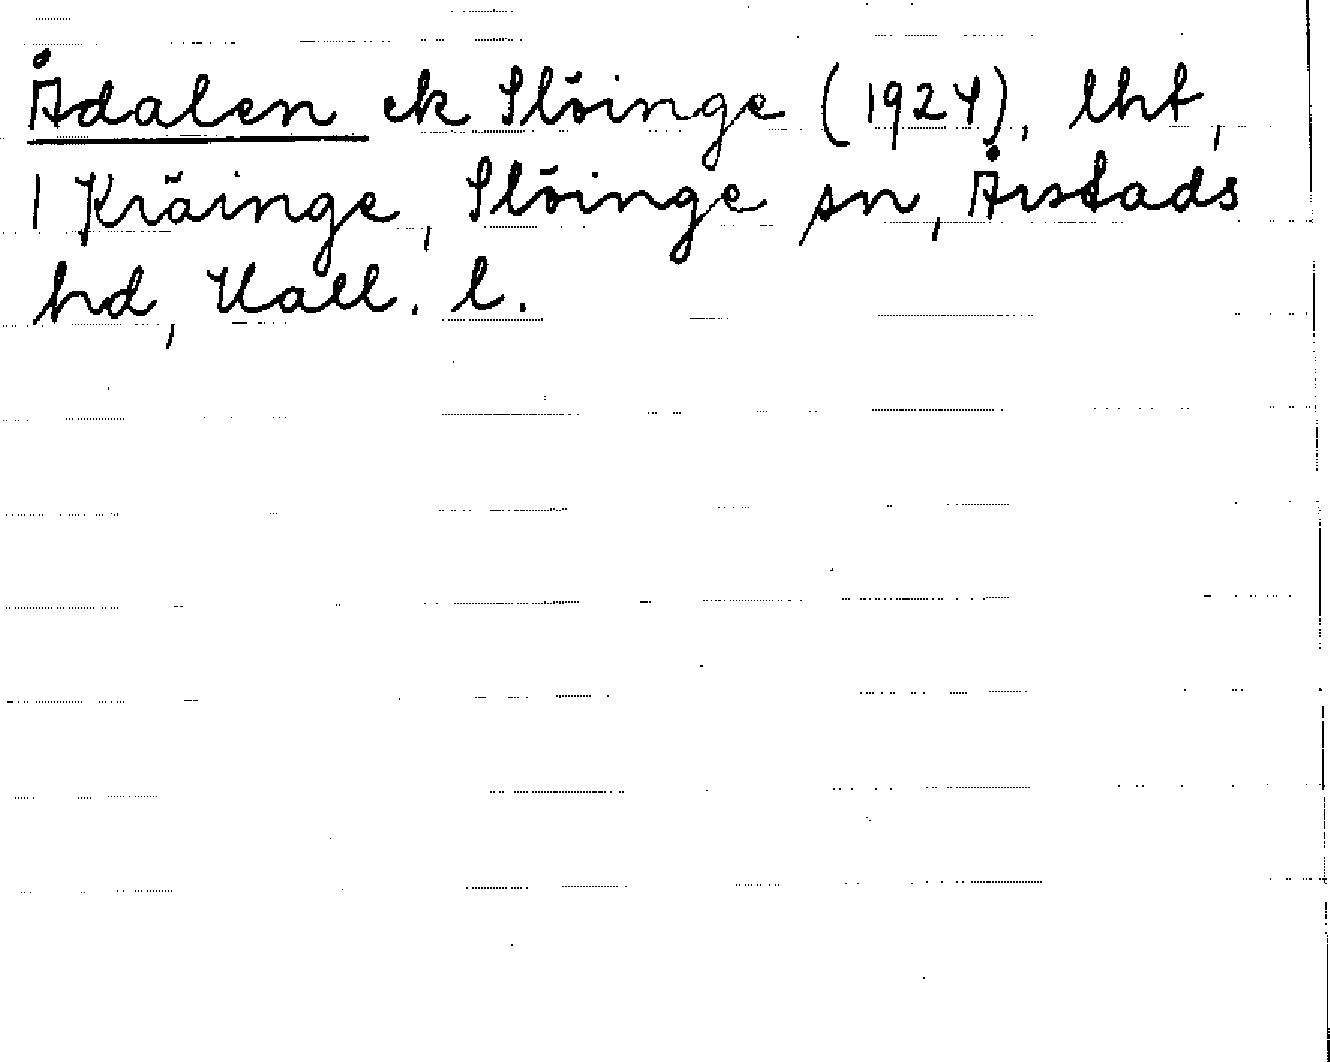 Ådalen ek Slöinge (1924), lht,
1 Kräinge, Slöinge sn, Årstads
hd, Hall. l.